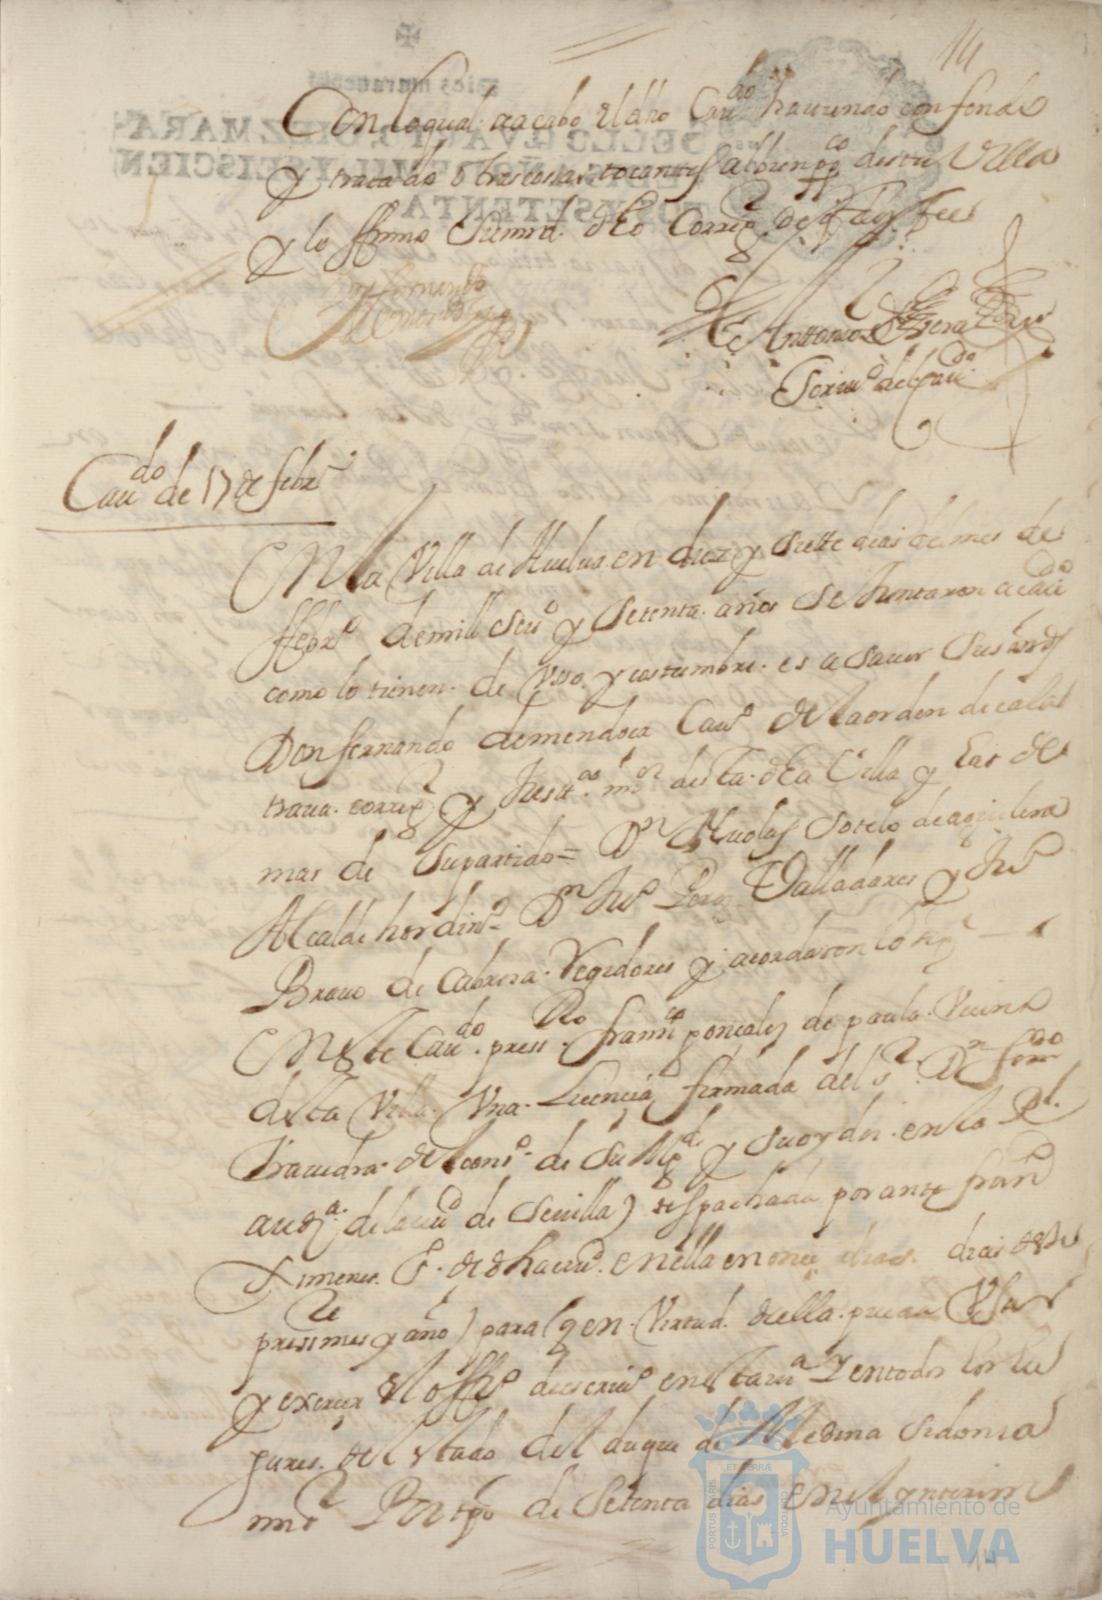 14
Con lo qual se acabo el dho Cauᵈᵒ hauiendo conferido
y tratado otras cosas tocantes al bien ppᶜᵒ desta Villa
y lo firmo Su md. dho Corregʳ de q doy fee
Don fernando
de Mendoça
Antonio
Scriuᵒ del Cauᵈᵒ
Cauᵈᵒ de 17 de febrᵒ
En la Villa de Huelua en diez y siete dias del mes de
ffebrᵒ de mill seisᵒ y setenta años se Juntaron a Cauᵈᵒ
como lo tienen de Vso y costumbre es a sauer Sus mrdˢ
Don fernando de mendoça Cauᵒ de la orden de Cala
traua corregʳ y Justᵃ mᵒʳ desta dha Villa y las de
mas de su partido = Dⁿ Nicolas Sotelo de aguilera
Alcalde hordinᵒ Dⁿ Juᵒ Perez Valladares y Juᵒ
Brauo de Cabrera Regidores y acordaron lo sigᵉ
En este Cauᵈᵒ pressᵗᵒ franᶜᵒ gonçalez de paula Vecino
desta Villa Vna Licencia firmada del sʳ Dⁿ ferⁿᵈᵒ
Trauiedra del consᵒ de Su Mgᵈ y su oydor en la Rˡ
audᵃ de la ciuᵈ de Seuilla) despachada por ante franᶜᵒ
Ximenes Eᵒ de dha ciuᵈ en ella en onze dias deste
presᵗᵉ mes y año) para q en Virtud della pueda Vsar
y exercer el offiᵒ de escriuᵒ en esta Vᵃ y en todos los lu
gares del estado del duque de Medina Sidonia
mi sʳ Por tpo de setenta dias En el ynterin
Ayuntamiento de
HUELVA
PORTUS MARIS
ET TERRÆ
CUSTODIA
14